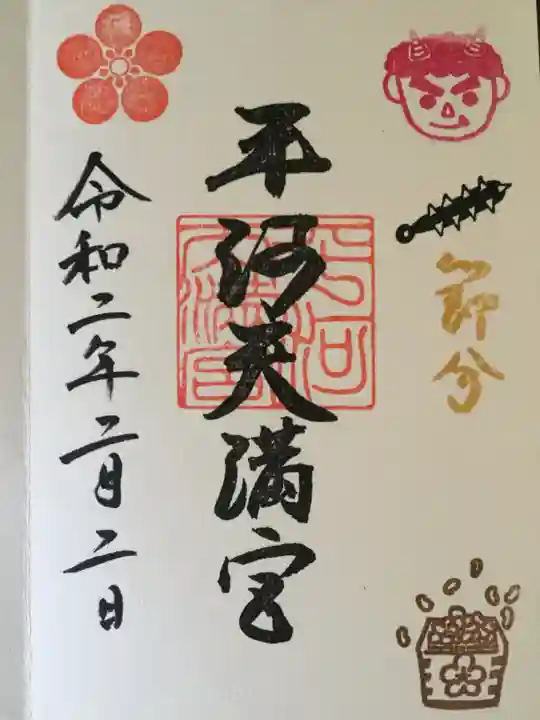 節分
平河天満宮
令和二年二月二日